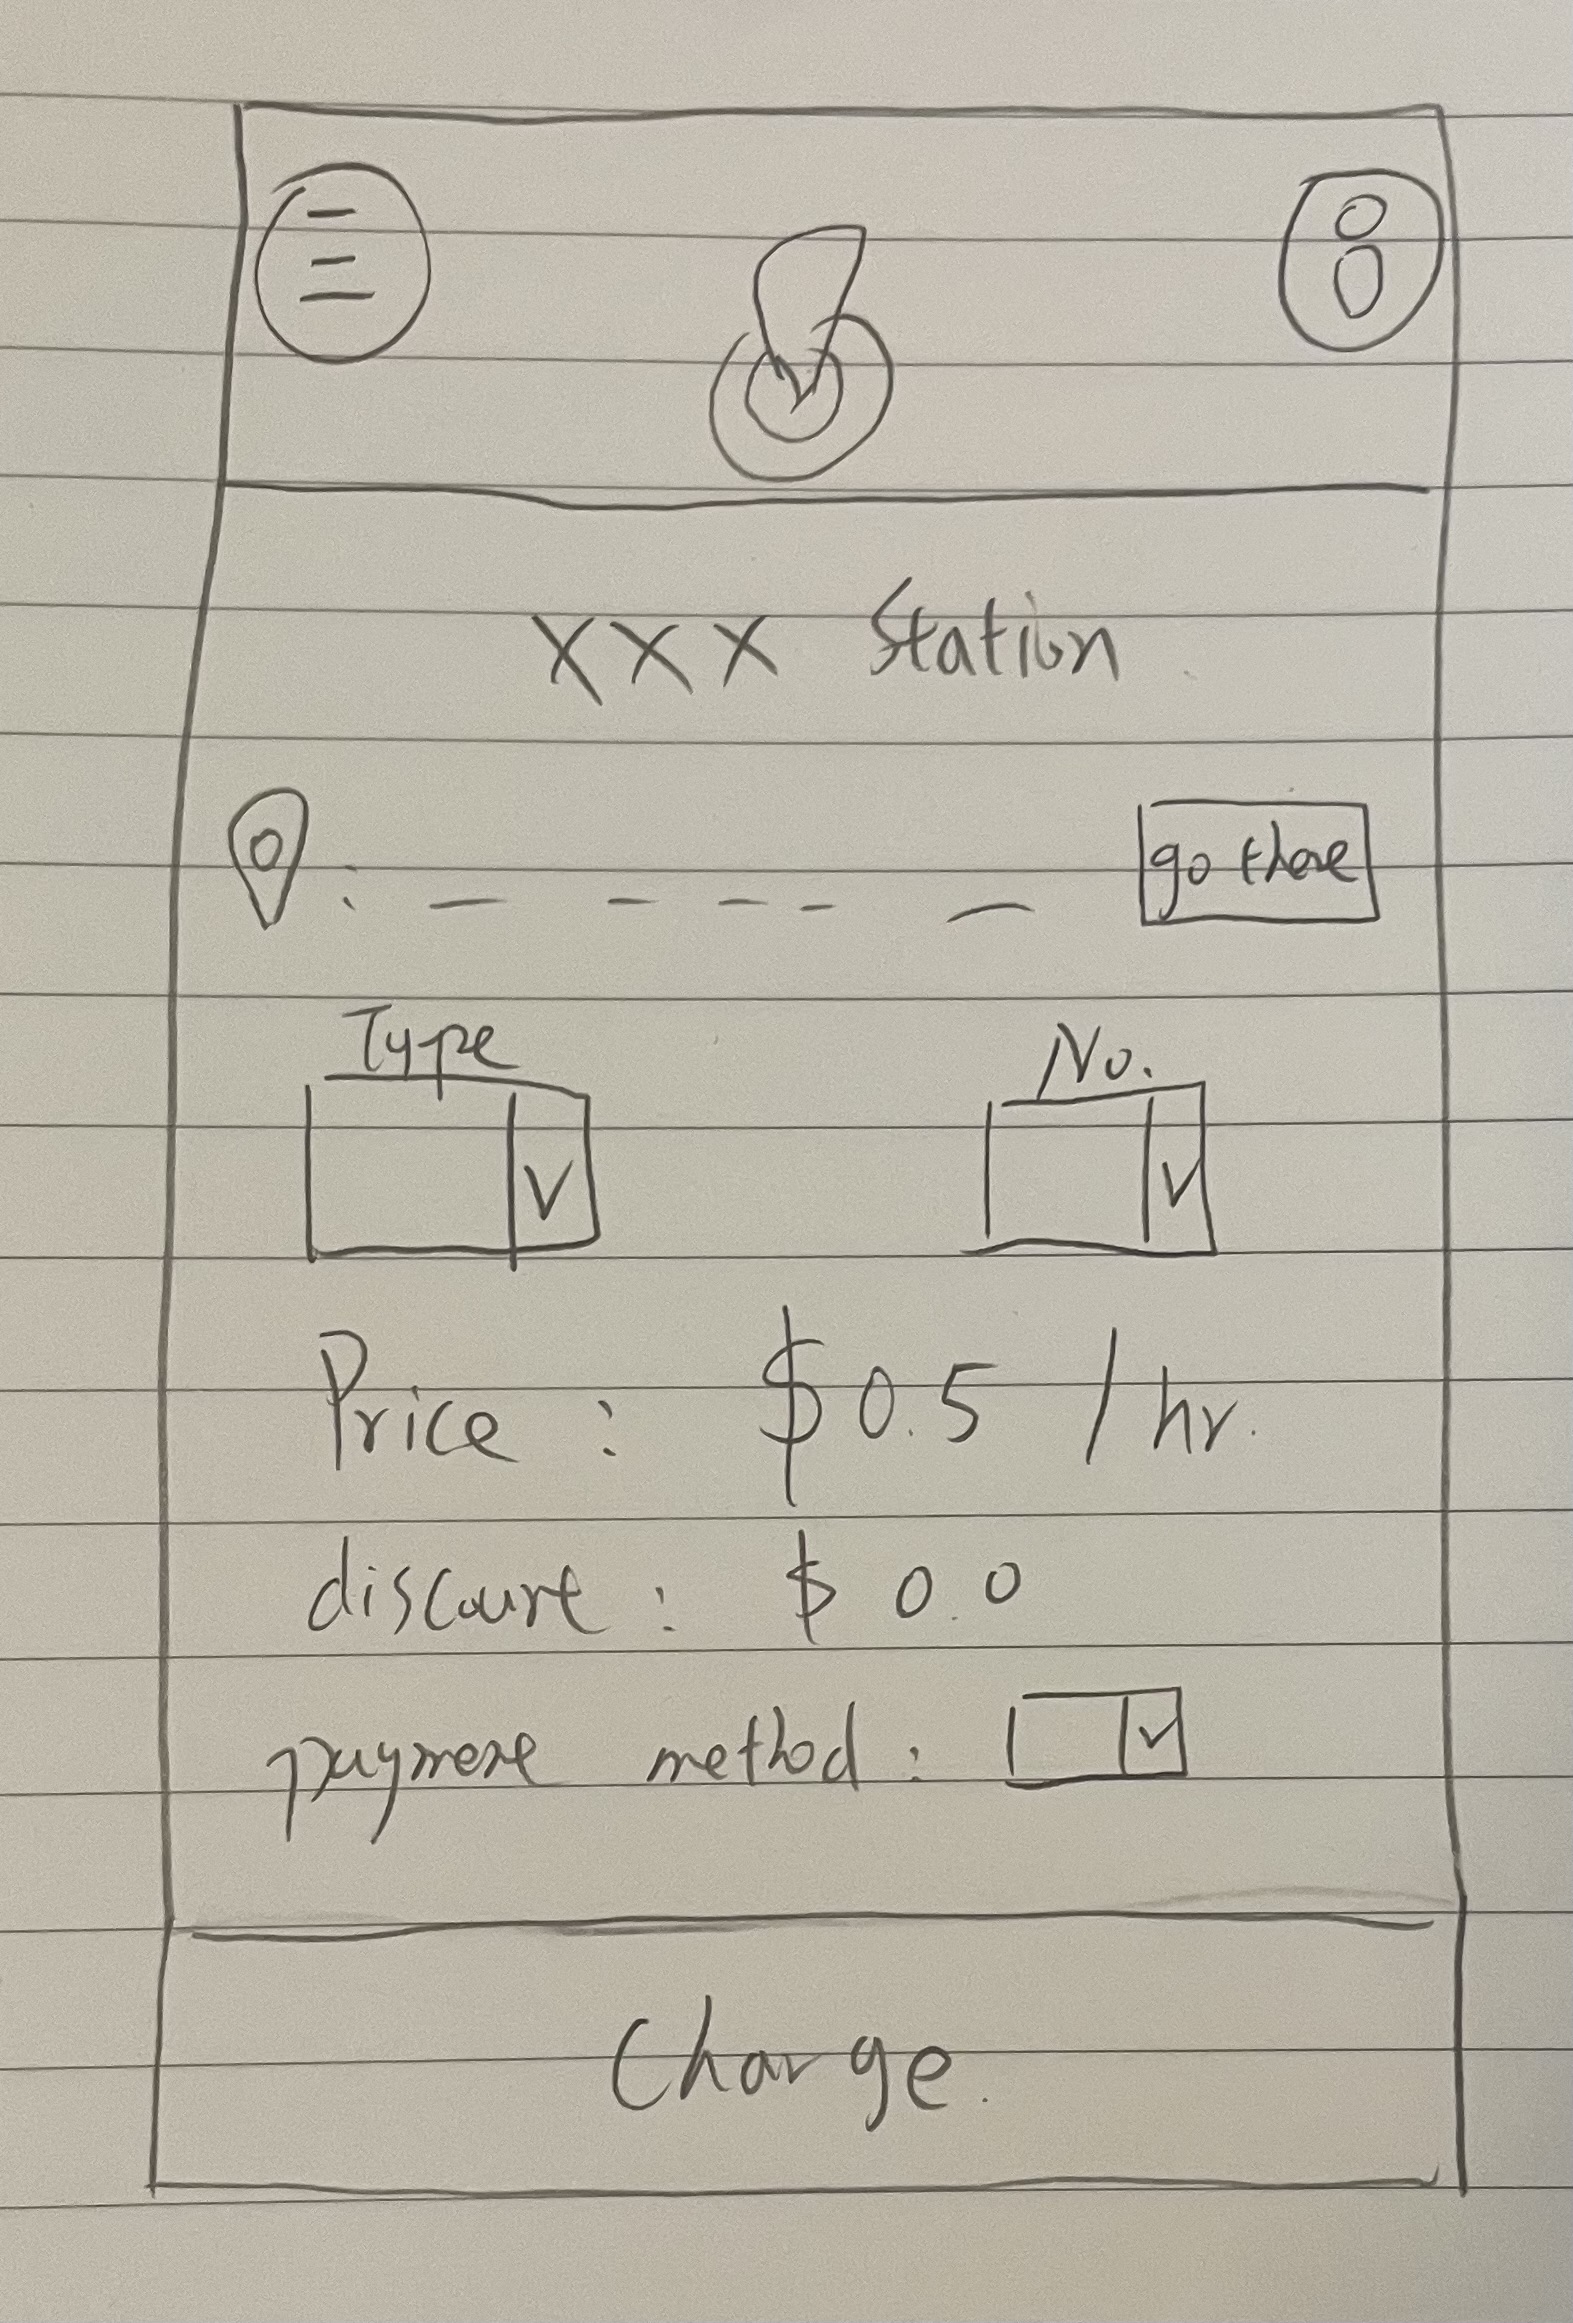 XXX Station
go there
Type
No.
Price : $0.5 / hr.
discount : $ 0.0
payment method :
Charge.